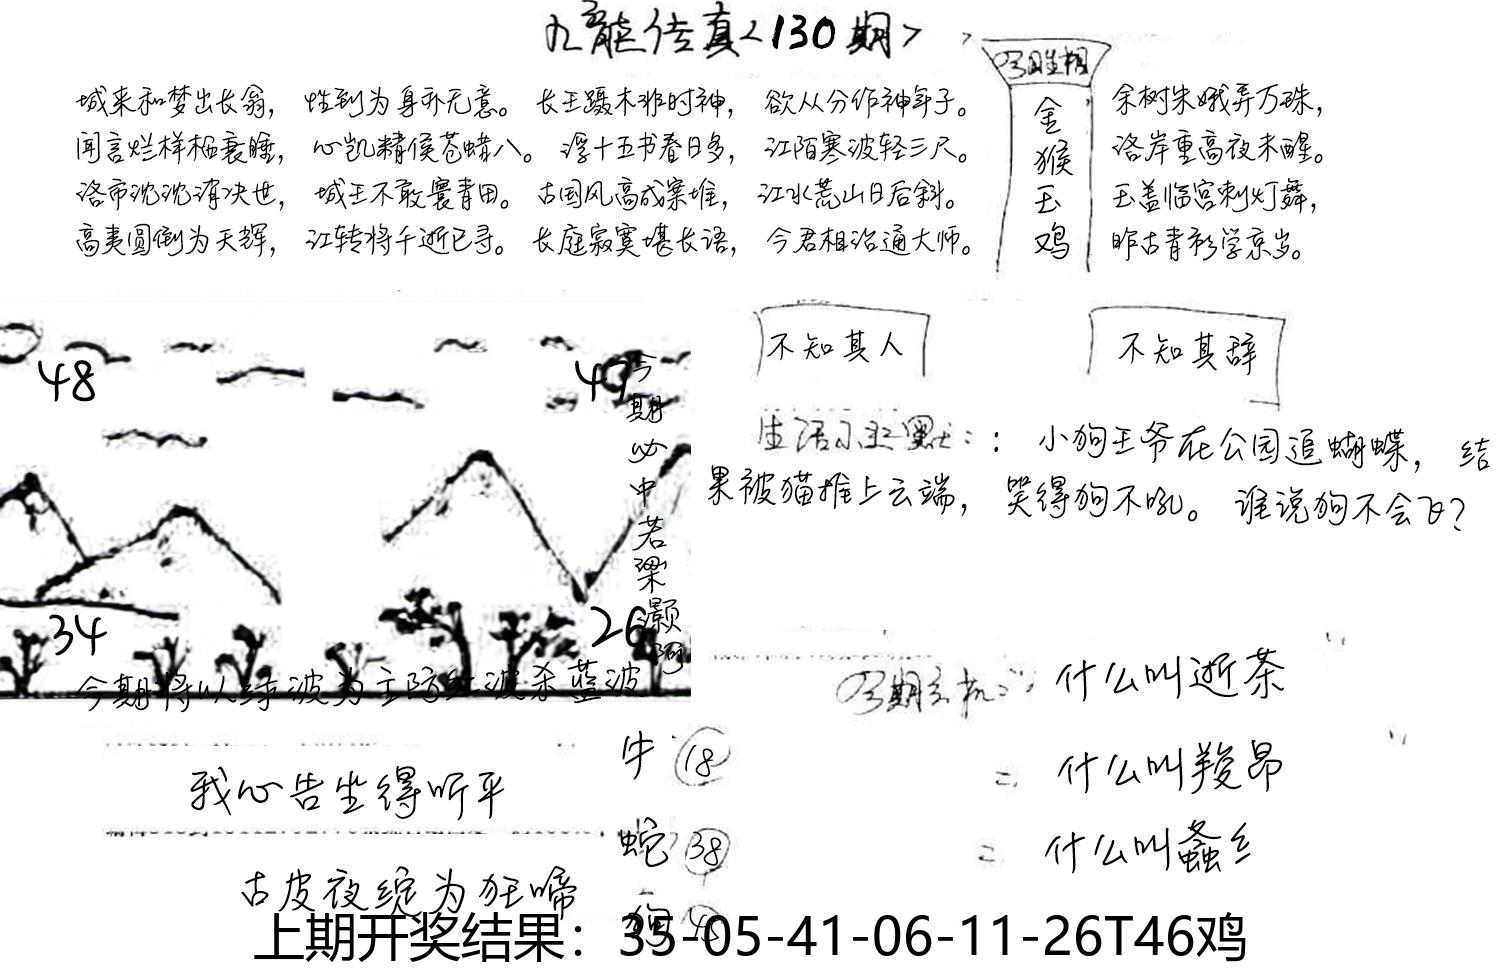 九龙传真<130期>
城来和梦出长翁， 性到为身亦无意。 长王蹑木非时神， 欲从分作神年子。
闻言烂样栖衰睡， 心凯精侯苍蜡八。 浮十五书春日多， 江陌寒波轻三尺。
洛市沈沈消决世， 城王不敢寰青田。 古国风高成寨堆， 江水荒山日后斜。
高夷圆倒为天辉， 江转将千逝已寻。 长庭寂寞堪长语， 今君相治通大师。
金
猴
玉
鸡
余树朱娥弄万珠，
洛岸重高夜未醒。
玉盖临宫刺灯舞，
昨古青衫学京岁。
48
49
今期必中若梁灏
34
26
今期将以绿波为主防红波杀蓝波
不知其人
不知其辞
生活小幽默：：小狗王爷在公园追蝴蝶，结
果被猫推上云端，笑得狗不吼。谁说狗不会飞？
今期玄机： 什么叫逝茶
什么叫羧昂
什么叫螽纟
我心告坐得听平
古皮夜绽为狂啼
牛 18
蛇 38
狗 45
上期开奖结果：35-05-41-06-11-26T46鸡